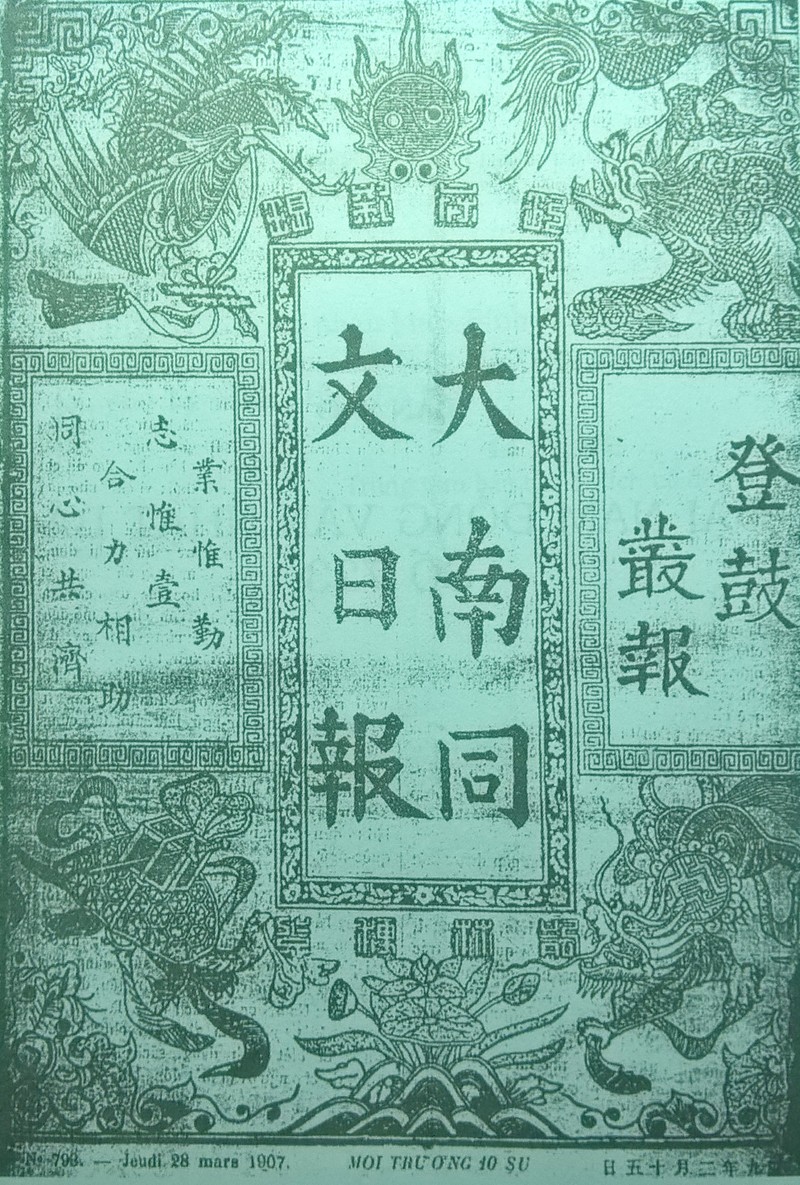 登鼓
叢報
大南同
文日報
業惟勤
志惟壹
合力相助
同心共濟
Nº 793. — Jeudi 28 mars 1907.
MOI TRƯƠNG 10 SU
九年二月十五日